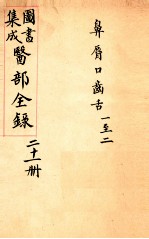 鼻唇口齒舌 一至二
圖書
集成
醫部全錄
二十一册